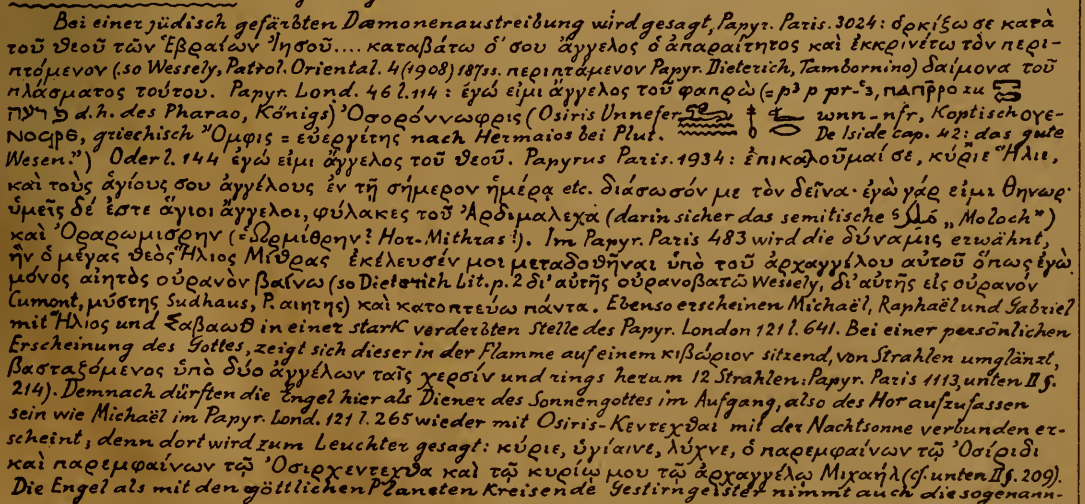 Bei einer jüdisch gefärbten Dæmonenaustreibung wird gesagt, Papyr. Paris. 3024: ὁρκίζω σε κατὰ
τοῦ θεοῦ τῶν Ἑβραίων Ἰησοῦ.... καταβάτω ὁ σου ἄγγελος ὁ ἀπαραίτητος καὶ ἐκκρινέτω τὸν περι-
πτόμενον (so Wessely, Patrol. Oriental. 4 (1908) 187ss. περιπτάμενον Papyr. Dieterich, Tambornino) δαίμονα τοῦ
πλάσματος τούτου. Papyr. Lond. 46 l. 114: ἐγώ εἰμι ἄγγελος τοῦ φαπρὼ (= p³ p pr-ꜥ³, ⲡⲁⲡⲣ̅ⲣⲟ zu
פרעה d.h. des Pharao, Königs) Ὀσορόννωφρις (Osiris Unnefer wnn-nfr, Koptisch ⲟⲩⲉ-
ⲛⲟϥⲣⲉ, griechisch Ὄμφις = εὐεργέτης nach Hermaios bei Plut. De Iside cap. 42: das gute
Wesen.") Oder l. 144 ἐγώ εἰμι ἄγγελος τοῦ θεοῦ. Papyrus Paris. 1934: ἐπικαλοῦμαί σε, κύριε Ἥλιε,
καὶ τοὺς ἁγίους σου ἀγγέλους ἐν τῇ σήμερον ἡμέρᾳ etc. διάσωσόν με τὸν δεῖνα· ἐγὼ γάρ εἰμι Θηνωρ·
ὑμεῖς δέ ἐστε ἅγιοι ἄγγελοι, φύλακες τοῦ Ἀρδιμαλεχα (darin sicher das semitische „Moloch")
καὶ Ὀραρωμισρην (= Ὡρμίθρην? Hor-Mithras!). Im Papyr. Paris 483 wird die δύναμις erwähnt,
ἣν ὁ μέγας θεὸς Ἥλιος Μίθρας ἐκέλευσέν μοι μεταδοθῆναι ὑπὸ τοῦ ἀρχαγγέλου αὐτοῦ ὅπως ἐγὼ
μόνος αἰητὸς οὐρανὸν βαίνω (so Dieterich Lit. p. 2 δι' αὐτῆς οὐρανοβατῶ Wessely, δι' αὐτῆς εἰς οὐρανὸν
Cumont, μύστης Sudhaus, P. αιητης) καὶ κατοπτεύω πάντα. Ebenso erscheinen Michaël, Raphaël und Gabriel
mit Ἥλιος und Σαβαωθ in einer stark verderbten Stelle des Papyr. London 121 l. 641. Bei einer persönlichen
Erscheinung des Gottes, zeigt sich dieser in der Flamme auf einem κιβώριον sitzend, von Strahlen umglänzt,
βασταζόμενος ὑπὸ δύο ἀγγέλων ταῖς χερσίν und rings herum 12 Strahlen: Papyr. Paris 1113, unten II §.
214). Demnach dürften die Engel hier als Diener des Sonnengottes im Aufgang, also des Hor aufzufassen
sein wie Michaël im Papyr. Lond. 121 l. 265 wieder mit Osiris-Κεντεχθαι mit der Nachtsonne verbunden er-
scheint; denn dort wird zum Leuchter gesagt: κύριε, ὑγίαινε, λύχνε, ὁ παρεμφαίνων τῷ Ὀσίριδι
καὶ παρεμφαίνων τῷ Ὀσιρχεντεχθα καὶ τῷ κυρίῳ μου τῷ ἀρχαγγέλῳ Μιχαήλ (cf. unten II §. 209).
Die Engel als mit den göttlichen Planeten kreisende Gestirngeister nimmt auch die sogenann-